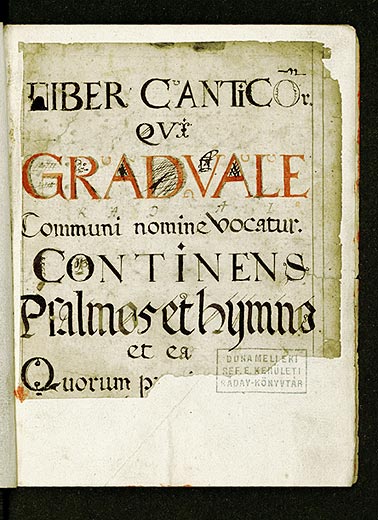 LIBER CANTICOr.
QVI
GRADVALE
Communi nomine vocatur.
CONTINENS
Psalmos et hymno
et ea
Quorum
DUNAMELLÉKI
REF. E. KERÜLETI
RÁDAY-KÖNYVTÁR